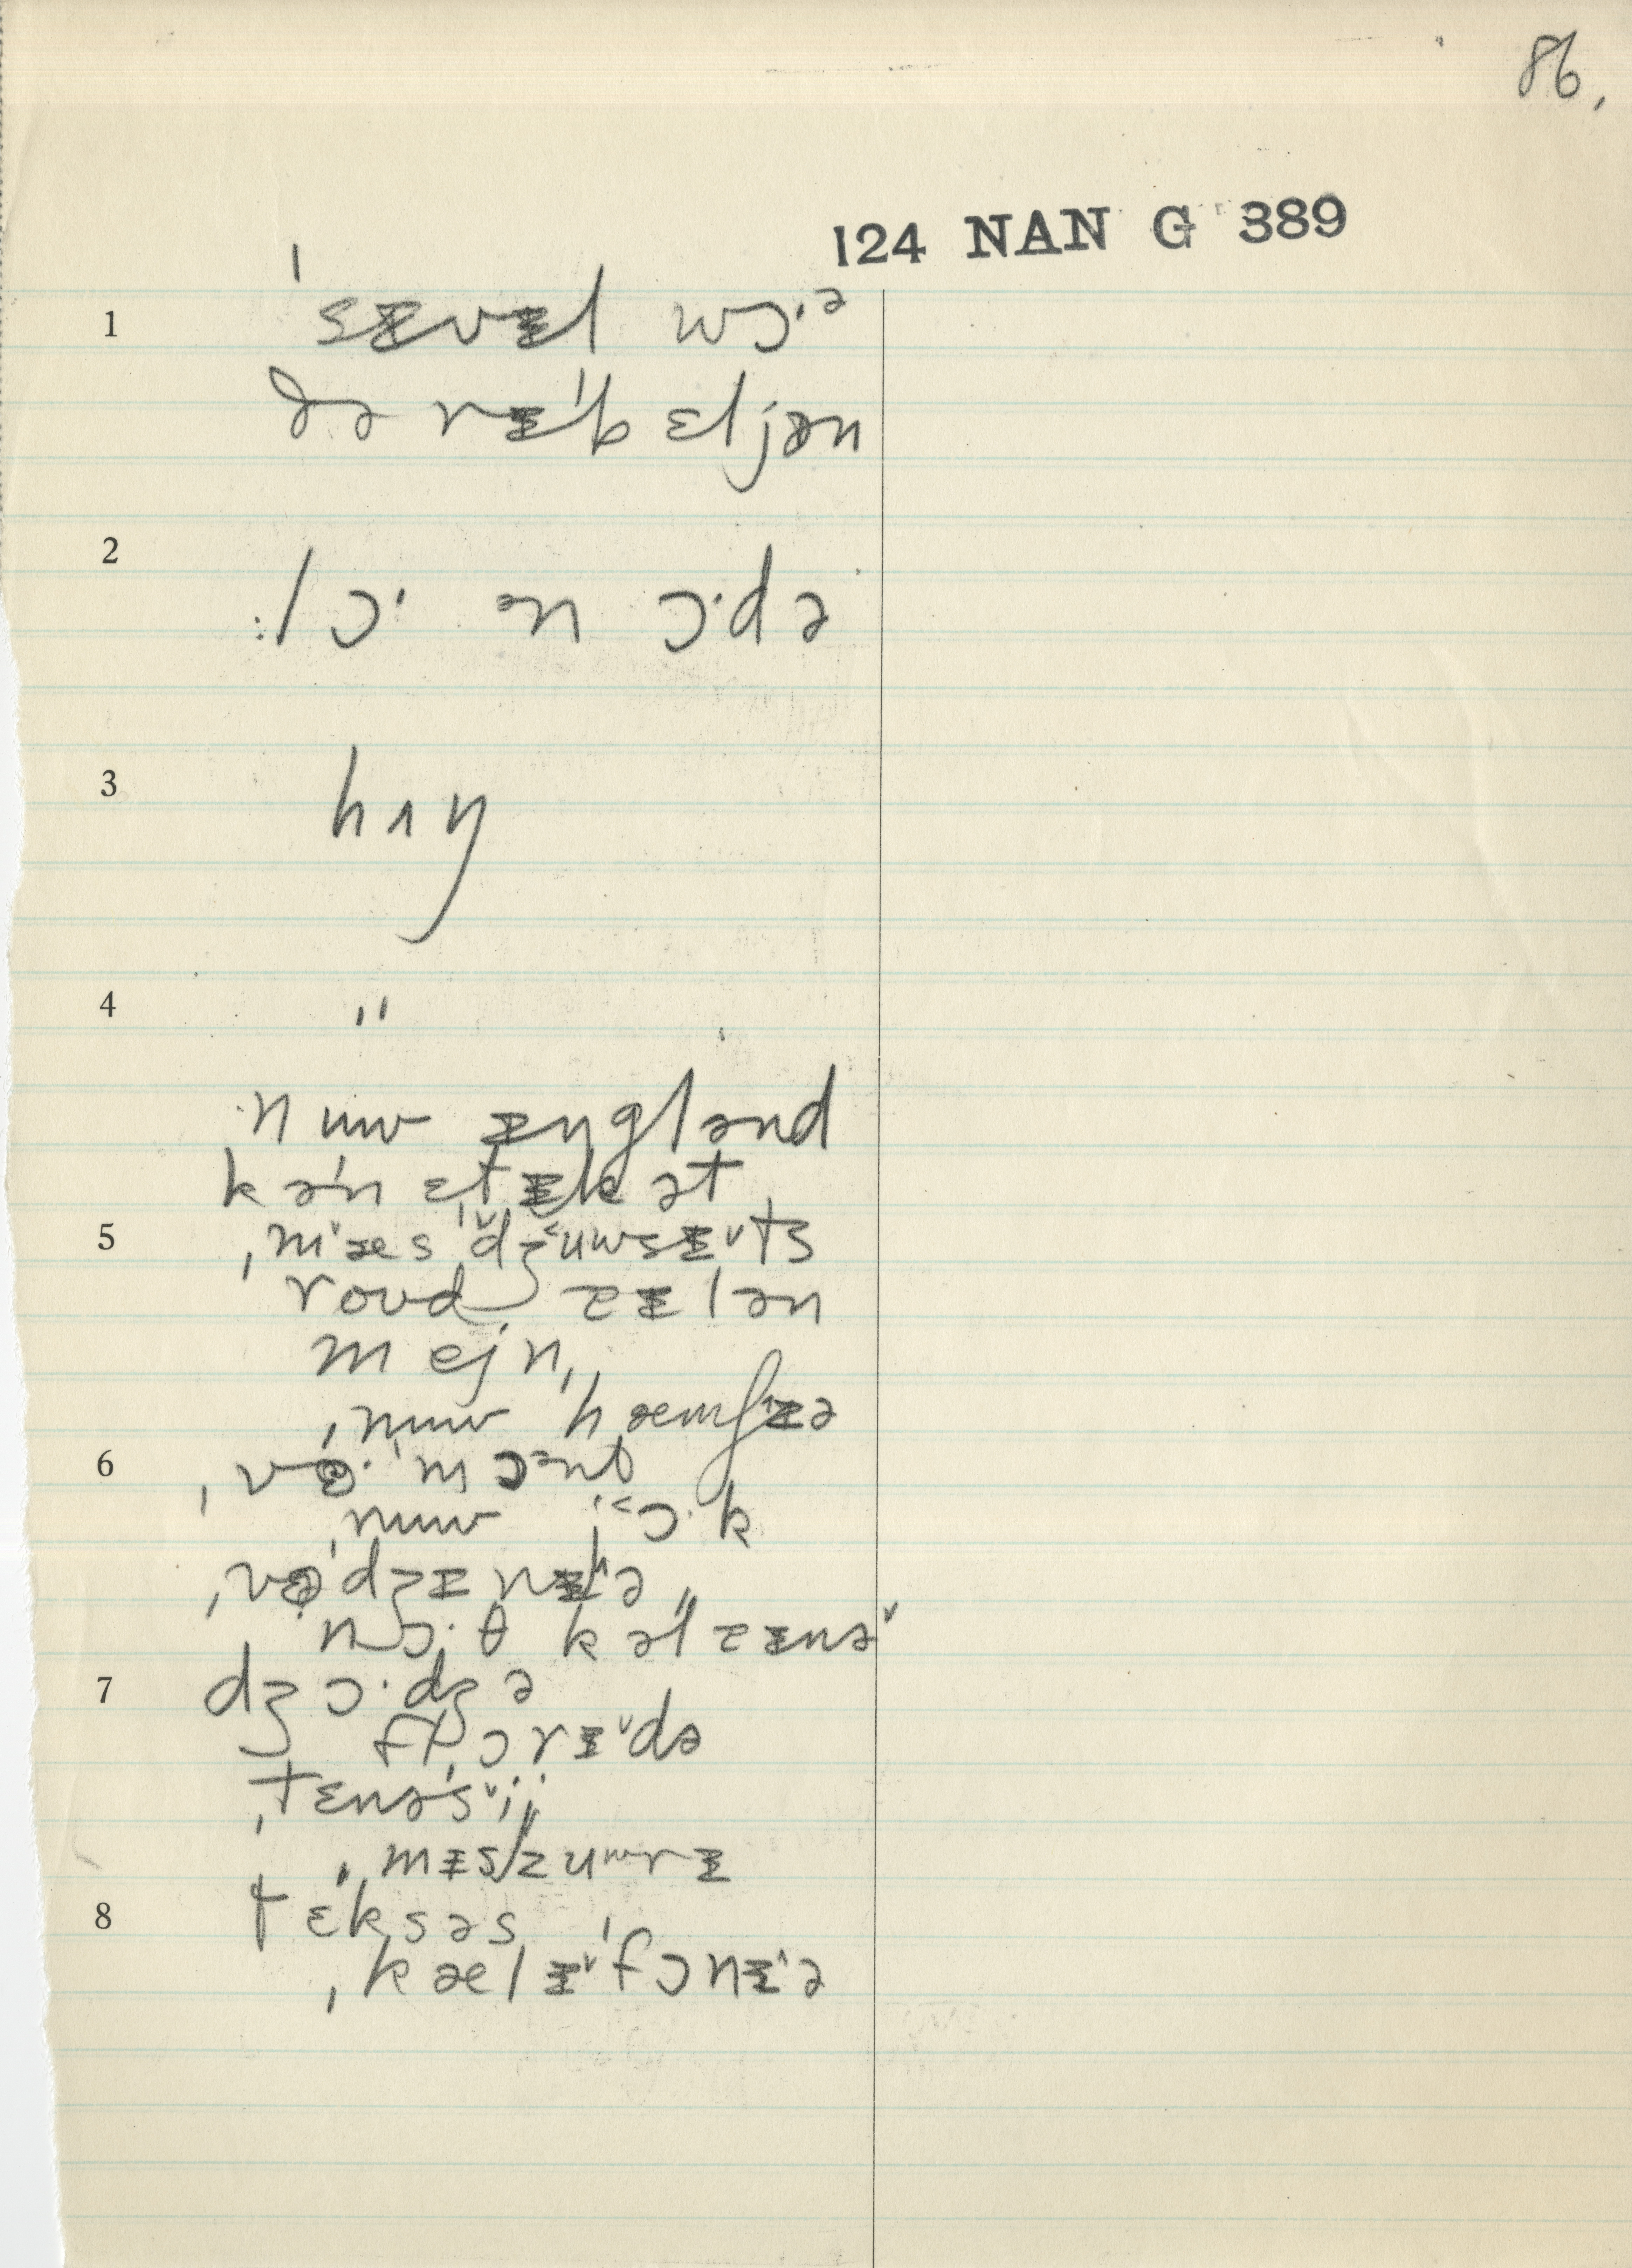 86.
124 NAN G 389
1 ˈsɪvɪl wɔ·ə
ðə rɪˈbɛljən
2 lɔ· ən ɔ·də
3 hʌŋ
4 "
nuw ɪŋglənd
kəˈnɛtɪkət
5 ˌmæsˈdʒuwsɪts
roud ɪlən
mejn
ˌnuw ˈhæmʃɪə
6 ˌvɜ·ˈmɔənt
ˌnuw jɔ·k
ˌvəˈdʒɪnɪə
nɔ·θ kəlɪnə
7 dʒɔ·dʒə
flɔrɪdə
ˌtɛnəˈsij
ˌmɪzuwrɪ
8 tɛksəs
ˌkælɪˈfɔnɪə